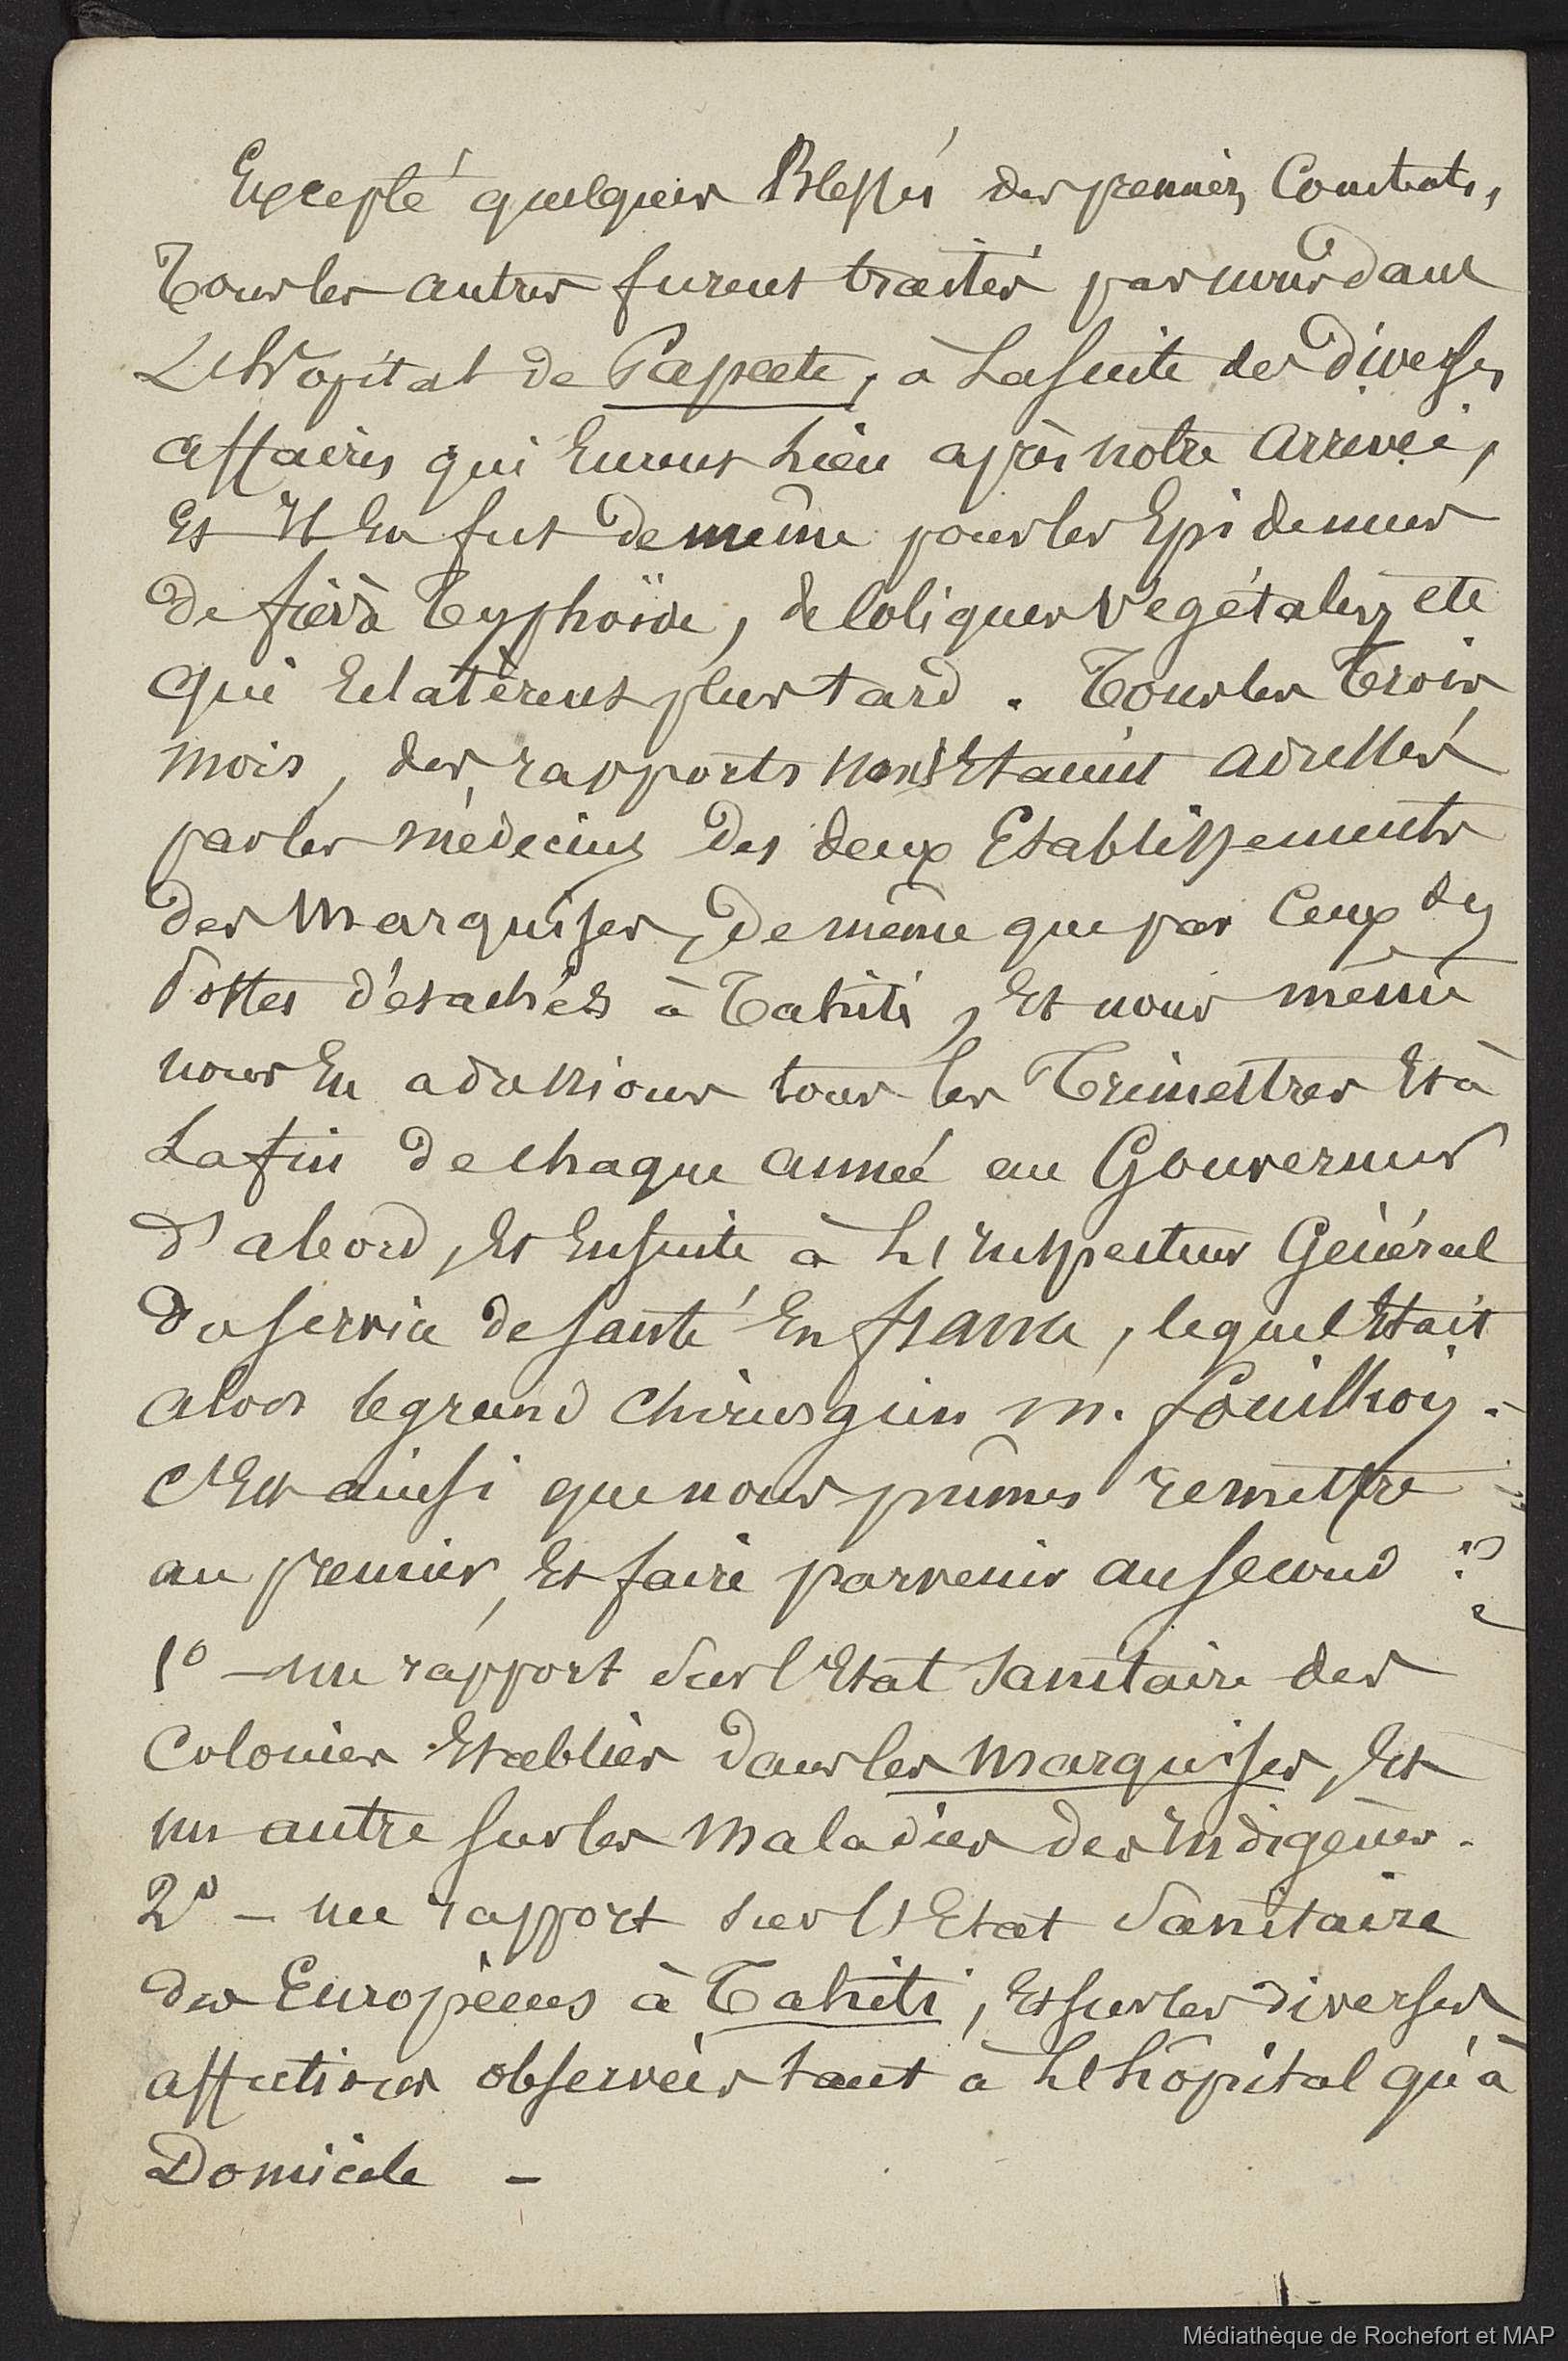 Excepté quelques Blessés des premiers Combats,
Tous les autres furent traités par nous dans
L'hôpital de Papeete, à La suite des diverses
affaires qui Eurent Lieu après notre arrivée,
Et Il En fut de même pour les Epidemies
De fièvre Typhoïde, de Coliques Végétales, etc
qui Eclatèrent plus tard. Tous les Trois
mois, des rapports nous Etaient adressés
par les médecins des deux Etablissements
des Marquises, De même que par Ceux des
Postes détachés à Tahiti, Et nous même
nous En adressions tous les Trimestres Et à
La fin de chaque année au Gouverneur
D'abord, Et Ensuite à L'Inspecteur Général
Du service de santé En france, lequel Etait
alors le grand Chirurgien M. fouilhoy.
C'Est ainsi que nous pûmes remettre
au premier, Et faire parvenir au second :
1° - un rapport Sur l'Etat Sanitaire des
Colonies Etablies dans les Marquises, Et
un autre sur les Maladies des Indigènes.
2° - un rapport sur l'Etat Sanitaire
des Européens à Tahiti, Et sur les diverses
affections observées tant à L'hôpital qu'à
Domicile -
Médiathèque de Rochefort et MAP